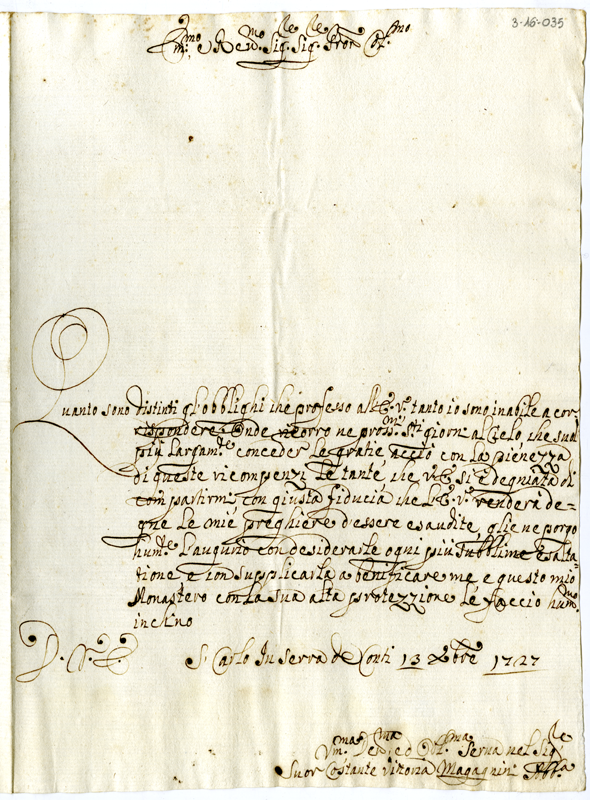 3-16-035
Em.mo e Re.mo Sig.le Sig.le Pron Col.mo
Quanto sono distinti gl'obblighi che professo all'E. V. tanto io sono inabile a cor-
rispondere Onde ricorro ne pross.mi S.ti giorni al Cielo che sual
più largam.te conceder le gratie, acciò con la pienezza
di queste ricompenzi le tante, che V. E. si è degniata di
compartirmi. Con giusta fiducia che L'E. V. renderà de-
gne le mie preghiere d'essere esaudite glie ne porgo
hum.te l'augurio con desiderarle ogni più subblime esalta-
tione, e con supplicarla a benificare me e questo mio
Monastero con la sua alta protezzione le faccio hum.mo
inclino
D. V. E.
S. Carlo In Serra de Conti 13 Xbre 1727
Vm.ma De.ma ed Obl.ma Serva nel Sig.le
Suor Costante Vittoria Magagnini Abb.a